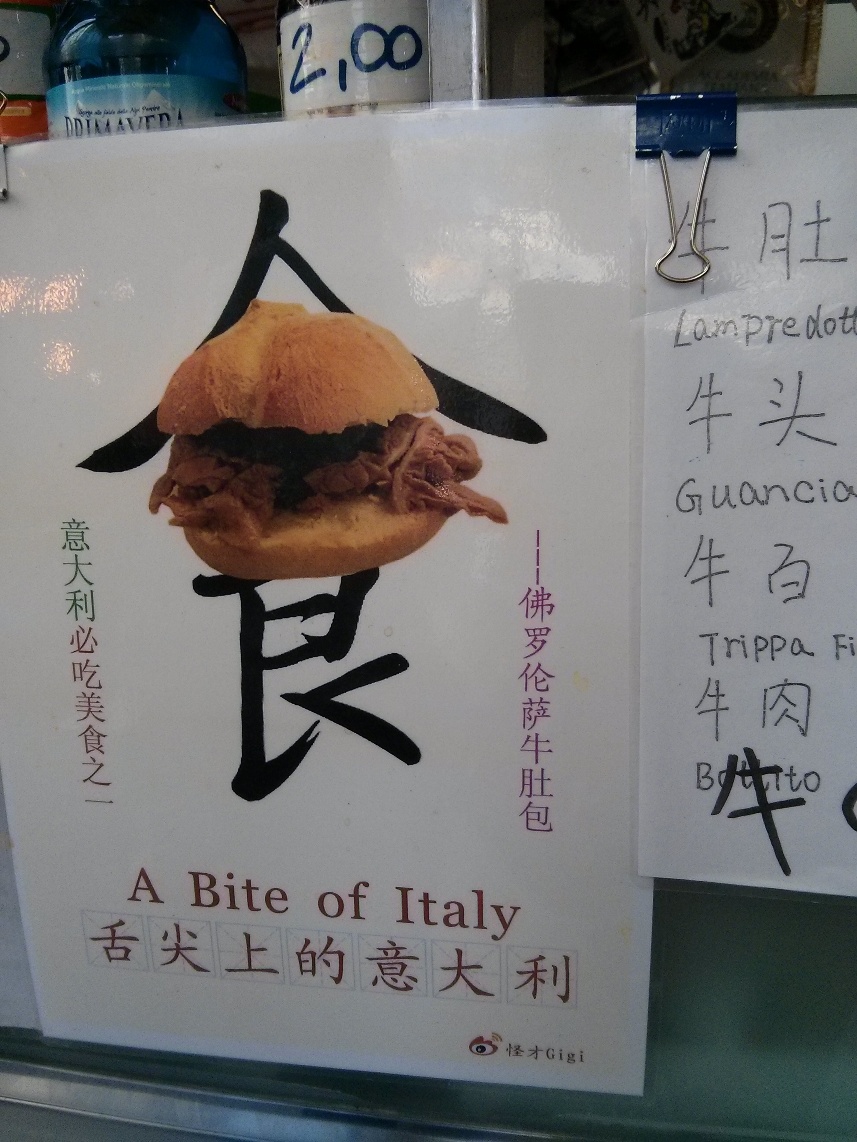 2,00
PRIMAVERA
食
意大利必吃美食之一
———佛罗伦萨牛肚包
A Bite of Italy
舌尖上的意大利
怪才Gigi
牛肚
Lampredott
牛头
Guancia
牛百
Trippa Fi
牛肉
牛